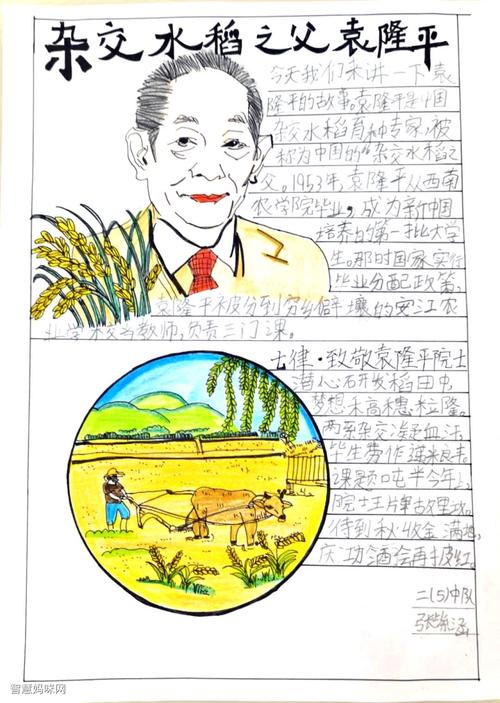 杂交水稻之父袁隆平
今天我们来讲一下袁
隆平的故事。袁隆平是中国
杂交水稻育种专家,被
称为中国的“杂交水稻之
父。1953年,袁隆平从西南
农学院毕业,成为新中国
培养的第一批大学
生。那时国家实行
毕业分配政策,
袁隆平被分到穷乡僻壤的安江农
业学校当教师,负责三门课。
七律·致敬袁隆平院士
潜心研发稻田中,
梦想禾高穗粒隆。
两系杂交凝血汗,
毕生劳作
课题吨半今年
院士
待到秋收金满
庆功酒会再披红。
二(5)中队
张紫涵
智慧妈咪网